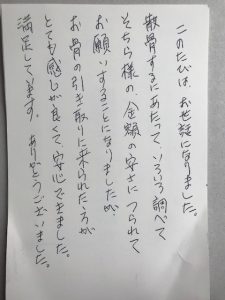 このたびは、お世話になりました。
散骨するにあたって、いろいろ調べて
そちら様の、金額の安さに つられて
お願いすることになりましたが、
お骨の引き取りに来られた方が
とても感じが良くて、安心できました。
満足しています。ありがとうございました。